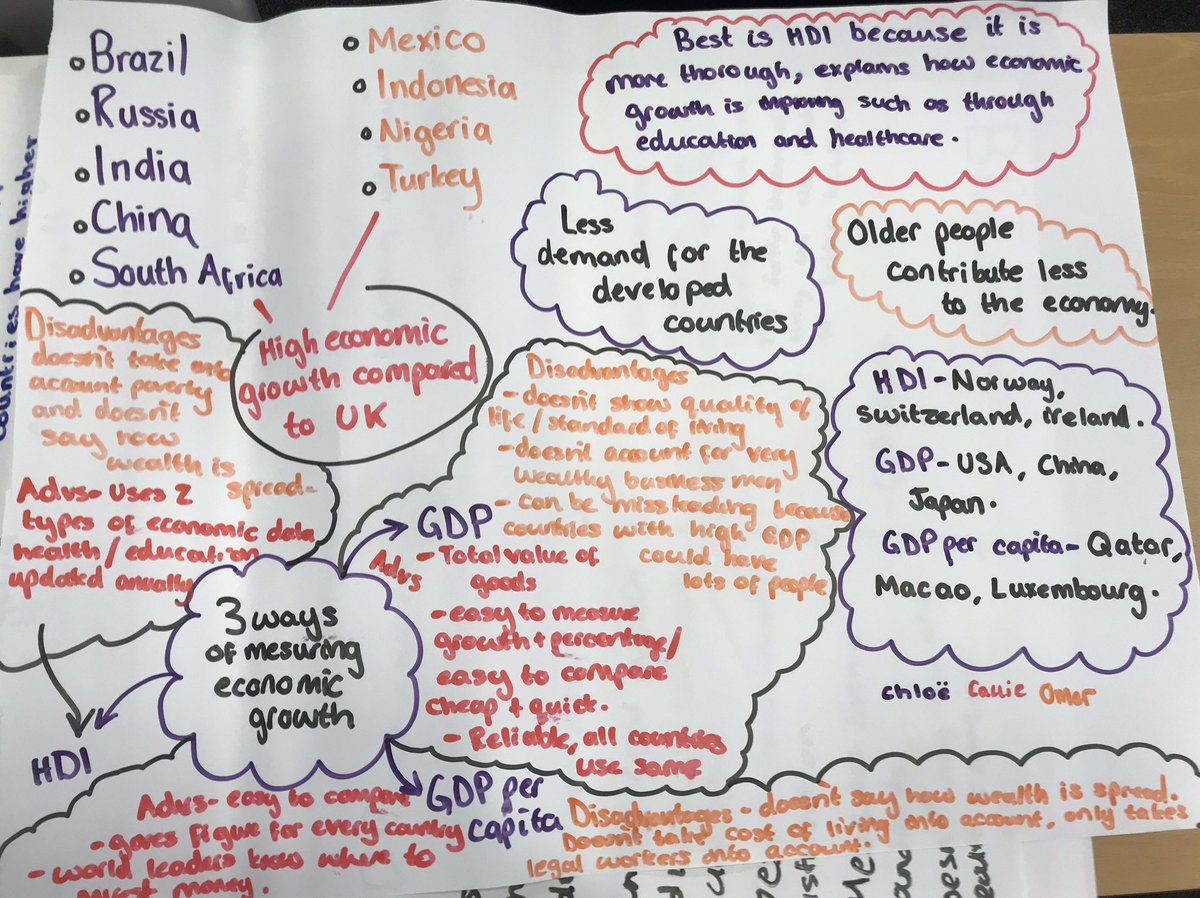 Brazil
Russia
India
China
South Africa
Mexico
Indonesia
Nigeria
Turkey
High economic
growth compared
to UK
Best is HDI because it is
more thorough, explains how economic
growth is improving such as through
education and healthcare.
Less
demand for the
developed
countries
Older people
contribute less
to the economy.
HDI - Norway,
Switzerland, ireland.
GDP - USA, China,
Japan.
GDP per capita - Qatar,
Macao, Luxembourg.
chloë Callie Omar
Disadvantages
doesn't take into
account poverty
and doesn't
say how
wealth is
spread-
Advs- uses 2
types of economic data
health/education
updated anually
HDI
3 ways
of mesuring
economic
growth
GDP
Disadvantages
- doesn't show quality of
life/standard of living
- doesn't account for very
wealthy business men
- can be missleading because
countries with high GDP
could have
lots of people
Advs - Total value of
goods
- easy to measure
growth + percentage/
easy to compare
cheap + quick.
- Reliable, all countries
use same
GDP per
capita
Advs- easy to compare
- gives figure for every country
- world leaders know where to
invest money.
Disadvantages - doesn't say how wealth is spread.
Doesn't take cost of living into account, only takes
legal workers into account.
countries have higher